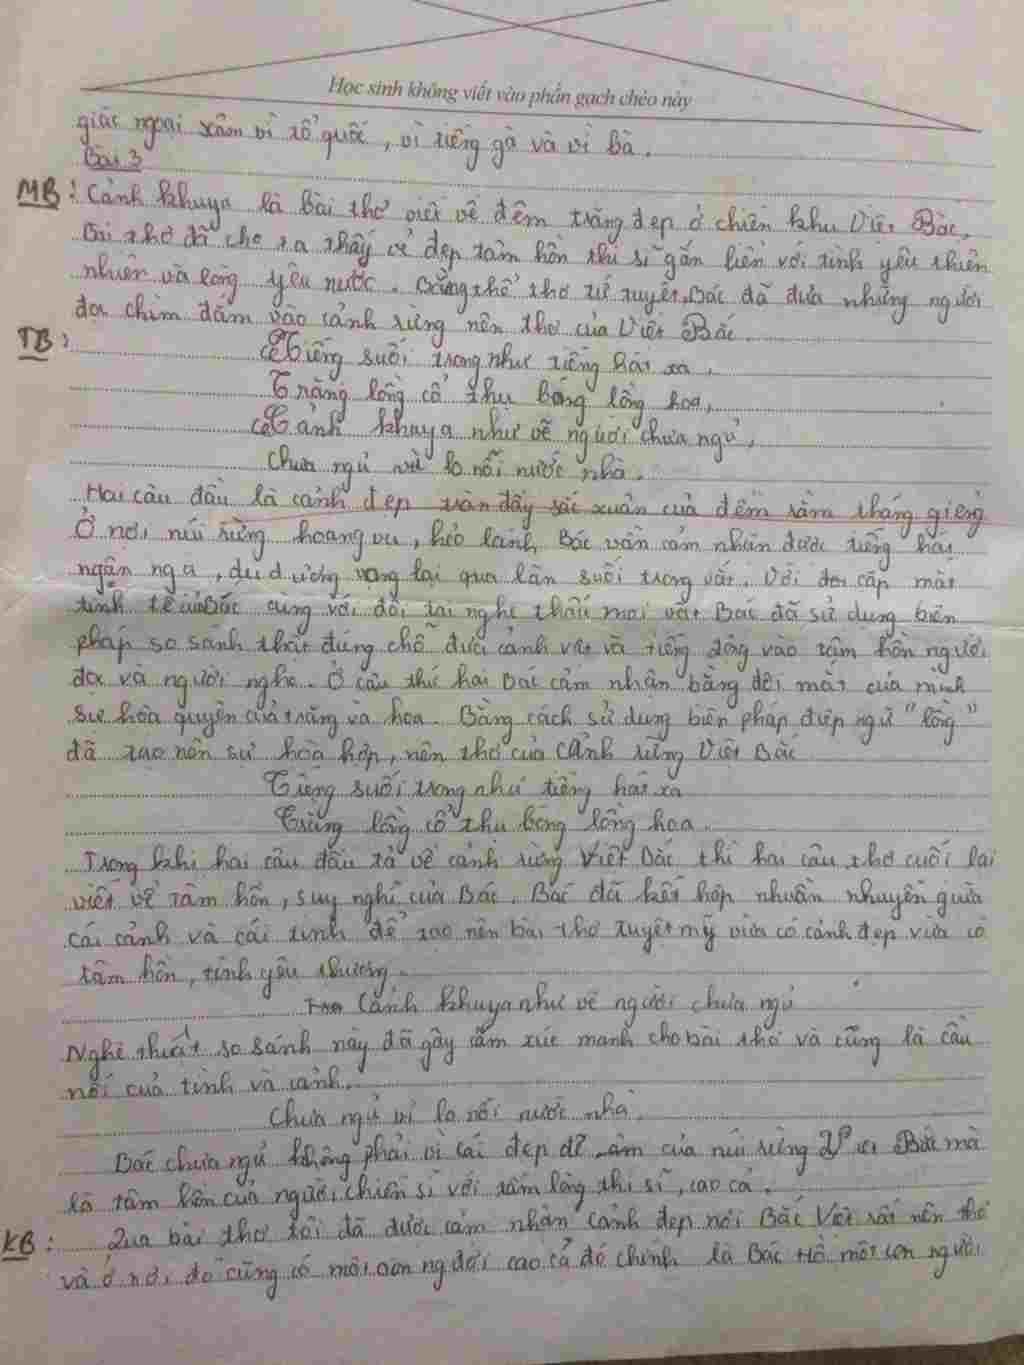 Học sinh không viết vào phần gạch chéo này
giặc ngoại xâm vì tổ quốc, vì tiếng gà và vì bà.
Bài 3
MB: Cảnh khuya là bài thơ viết về đêm trăng đẹp ở chiến khu Việt Bắc.
Bài thơ đã cho ta thấy vẻ đẹp tâm hồn thi sĩ gắn liền với tình yêu thiên
nhiên và lòng yêu nước. Bằng thể thơ tứ tuyệt, Bác đã đưa những người
đọc chìm đắm vào cảnh rừng nên thơ của Việt Bắc.
TB: Tiếng suối trong như tiếng hát xa,
Trăng lồng cổ thụ bóng lồng hoa,
Cảnh khuya như vẽ người chưa ngủ,
Chưa ngủ vì lo nỗi nước nhà.
Hai câu đầu là cảnh đẹp tràn đầy sắc xuân của đêm rằm tháng giêng
Ở nơi núi rừng hoang vu, hẻo lánh Bác vẫn cảm nhận được tiếng hát
ngân nga, du dương vọng lại qua làn suối trong vắt. Với đôi cặp mắt
tinh tế của Bác cùng với đôi tai nghe thấu mọi vật Bác đã sử dụng biện
pháp so sánh thật đúng chỗ đưa cảnh vật và tiếng động vào tâm hồn người
đọc và người nghe. Ở câu thứ hai Bác cảm nhận bằng đôi mắt của mình
sự hòa quyện của trăng và hoa. Bằng cách sử dụng biện pháp điệp ngữ "lồng"
đã tạo nên sự hòa hợp, nên thơ của cảnh rừng Việt Bắc
Tiếng suối trong như tiếng hát xa
Trăng lồng cổ thụ bóng lồng hoa.
Trong khi hai câu đầu tả về cảnh rừng Việt Bắc thì hai câu thơ cuối lại
viết về tâm hồn, suy nghĩ của Bác. Bác đã kết hợp nhuần nhuyễn giữa
cái cảnh và cái tình để tạo nên bài thơ tuyệt mỹ vừa có cảnh đẹp vừa có
tâm hồn, tình yêu thương.
Cảnh khuya như vẽ người chưa ngủ
Nghệ thuật so sánh này đã gây cảm xúc mạnh cho bài thơ và cũng là cầu
nối của tình và cảnh.
Chưa ngủ vì lo nỗi nước nhà.
Bác chưa ngủ không phải vì cái đẹp đẽ của núi rừng Việt Bắc mà
là tâm hồn của người chiến sĩ với tấm lòng thi sĩ, cao cả.
KB: Qua bài thơ tôi đã được cảm nhận cảnh đẹp nơi Bắc Việt rất nên thơ
và ở nơi đó cũng có một con người cao cả đó chính là Bác Hồ một con người